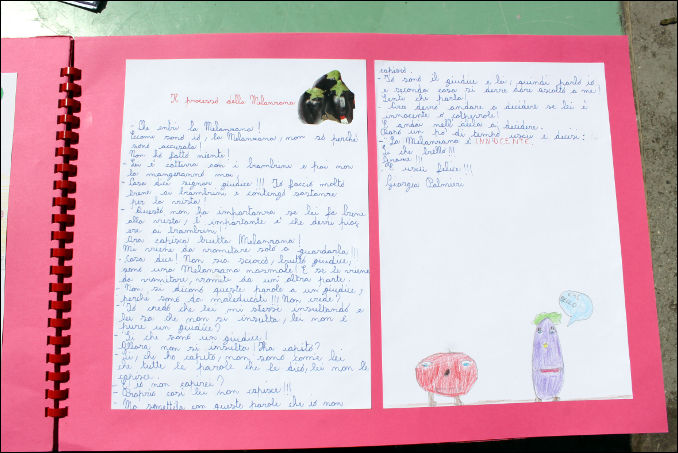 Il processo della Melanzana
- Che entri la Melanzana!
Eccome sono io, la Melanzana, non so perché
sono accusata!
Non ho fatto niente!
- Lei è cattiva con i bambini e poi non
la mangeranno mai.
- Cosa dice signor giudice!!! Io faccio molto
bene ai bambini e contengo sostanze
per la vista!
- Questo non ha importanza se lei fa bene
alla vista, l'importante è che devi piac
ere ai bambini!
Ora capisco brutta Melanzana!
Mi viene da vomitare solo a guardarla!!!
- Cosa dice! Non sia sciocco, brutto giudice,
sono una Melanzana normale! E se le viene
da vomitare, vomiti da un'altra parte.
- Non si dicono queste parole a un giudice,
perché sono da maleducati!!! Non crede?
- Io credo che lei mi stesse insultando e
lei sa che non si insulta, lei non è
pure un giudice?
- Sì che sono un giudice!
Allora non si insulta! Ha capito?
- Sì, che ho capito, non sono come lei
che tutte le parole che le dico, lei non le
capisce.
- E io non capirei?
- Proprio così lei non capisce!!!
- Ma smettila con queste parole che io non
capisco.
- Io sono il giudice e lei, quindi parlo io
e seconda cosa si deve dare ascolto a me!
Senti chi parla!
- Ora dovrò andare a decidere se lei è
innocente o colpevole!
E andai nell'aula a decidere.
Passò un po' di tempo uscii e decisi:
- La Melanzana è INNOCENTE.
Sì che bello!!!
Grazie!!!
E uscii felice!!!
Giorgia Palmieri